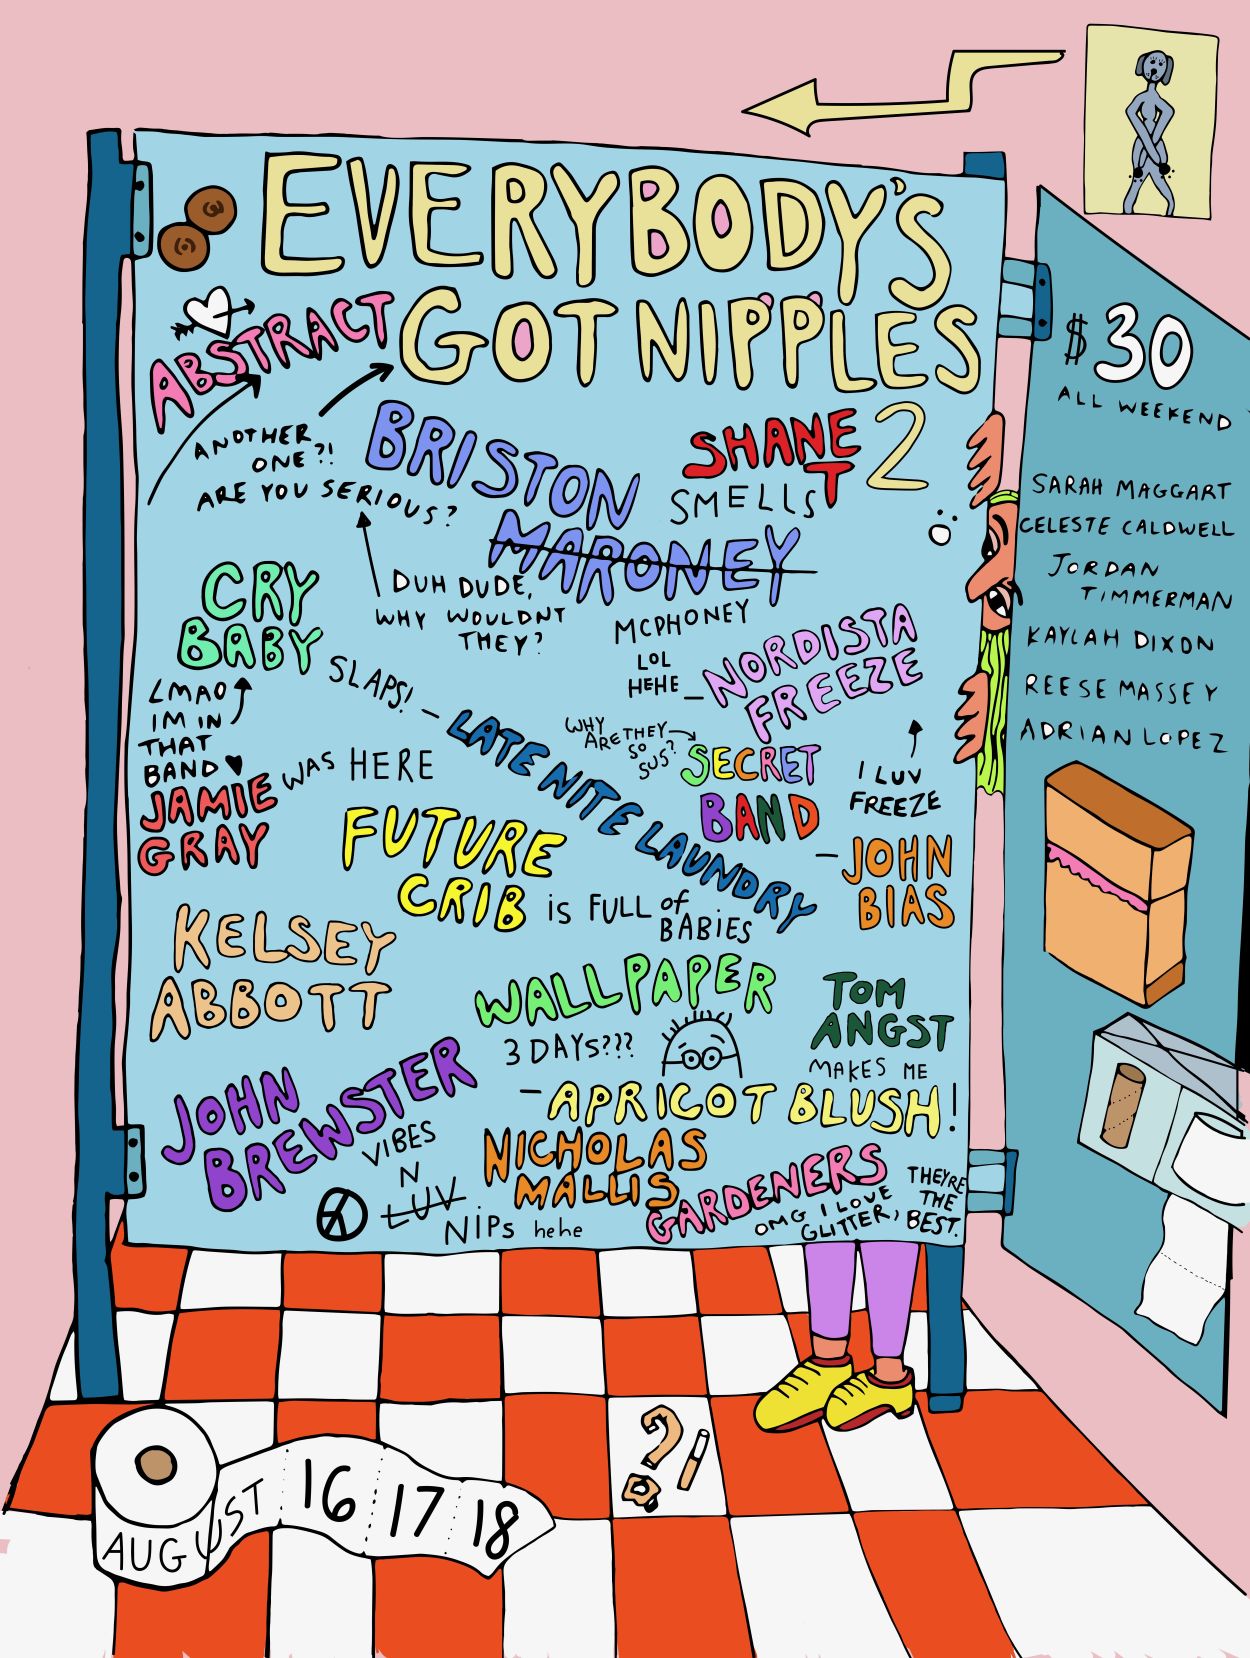 EVERYBODY'S
GOT NIPPLES
2
ABSTRACT
ANOTHER
ONE?!
ARE YOU SERIOUS?
BRISTON
MARONEY
SHANE
T
SMELLS
DUH DUDE,
WHY WOULDNT
THEY?
MCPHONEY
LOL
HEHE
– NORDISTA
FREEZE
CRY
BABY
SLAPS!
– LATE NITE LAUNDRY
LMAO
IM IN
THAT
BAND
WHY
ARE THEY
SO
SUS?
SECRET
BAND
I LUV
FREEZE
JAMIE
GRAY
WAS HERE
FUTURE
CRIB
iS FULL of
BABiES
– JOHN
BIAS
KELSEY
ABBOTT
WALLPAPER
3 DAYS???
TOM
ANGST
MAKES ME
BLUSH!
– APRICOT
JOHN
BREWSTER
VIBES
N
LUV
NiPS hehe
NICHOLAS
MALLIS
GARDENERS
OMG I LOVE
GLITTER,
THEY'RE
THE
BEST.
$30
ALL WEEKEND
SARAH MAGGART
CELESTE CALDWELL
JORDAN
TIMMERMAN
KAYLAH DIXON
REESE MASSEY
ADRIAN LOPEZ
AUGUST 16 17 18
?